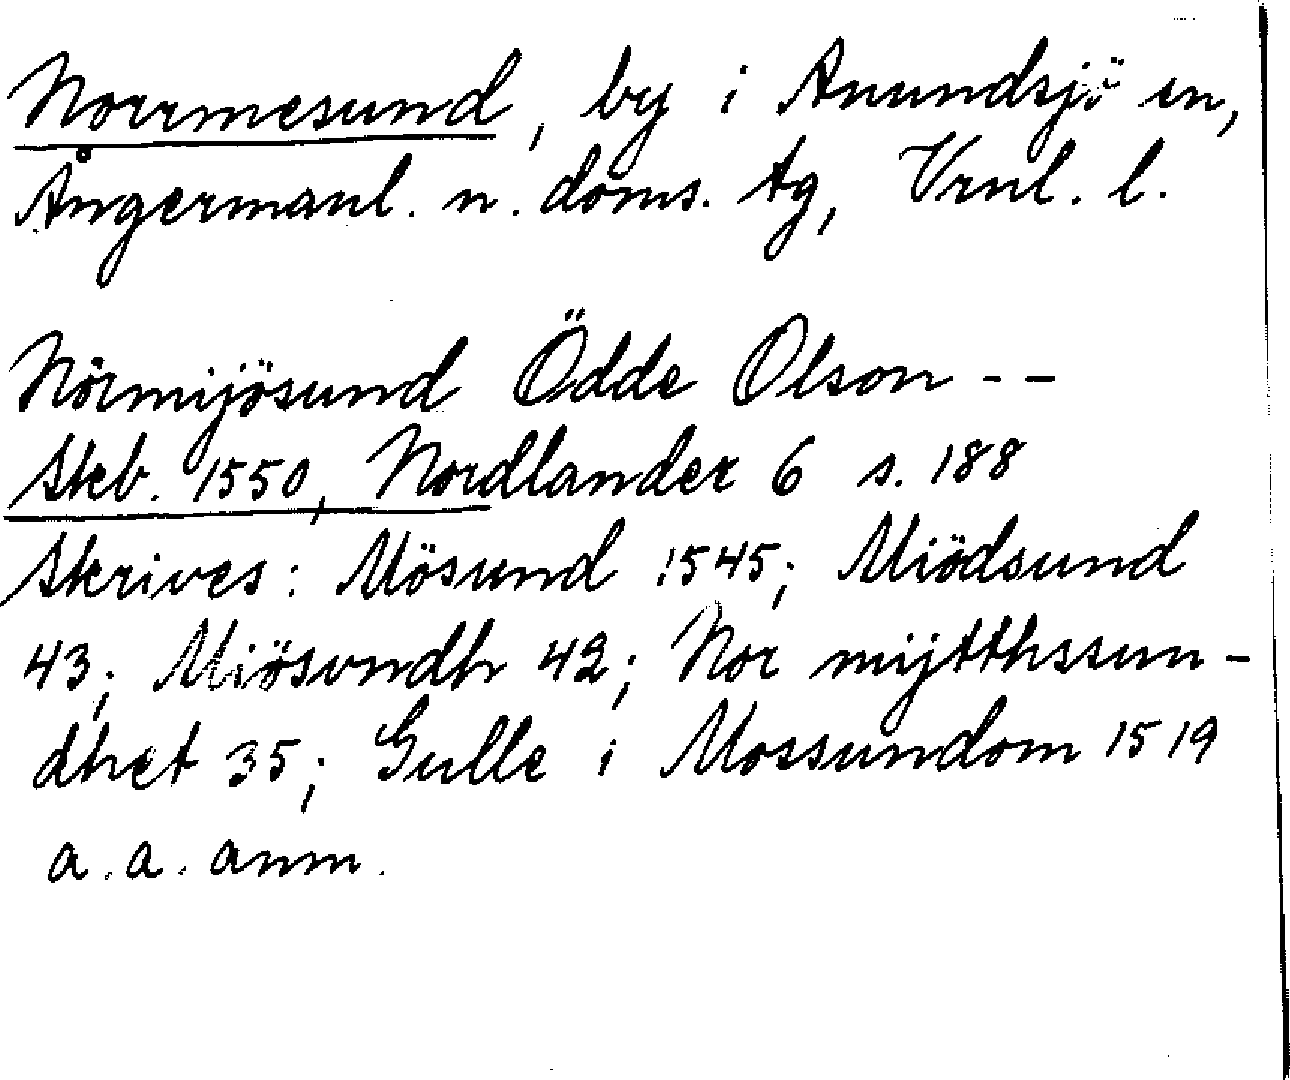 Norrmesund, by i Anundsjö sn,
Ångermanl. n. doms. tg, Vrnl. l.
Nörmijösund Ödde Olson - -
Skeb. 1550, Nordlander 6 s. 188
Skrives: Mösund 1545; Miödsund
43; Miösvndh 42; Nor mijtthssun-
dhet 35; Gulle i Mossundom 1519
a. a. anm.